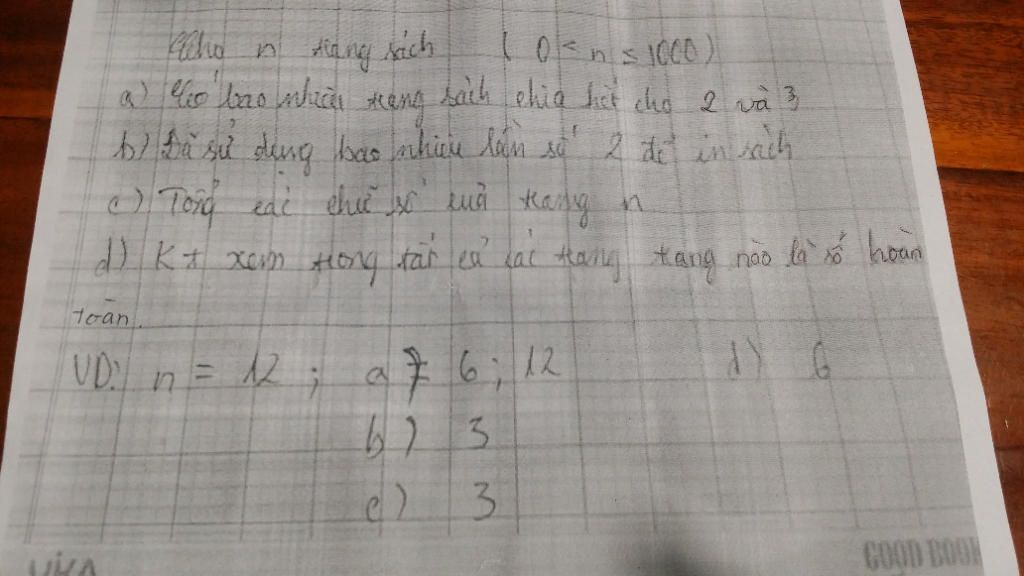 Cho n trang sách ( 0 < n ≤ 1000 )
a) Có bao nhiêu trang sách chia hết cho 2 và 3
b) Đã sử dụng bao nhiêu lần số 2 để in sách
c) Tổng các chữ số của trang n
d) Kt xem trong tất cả các trang trang nào là số hoàn
toàn.
VD: n = 12 ; a) 6 ; 12 d) 6
b) 3
c) 3
GOOD BOOK